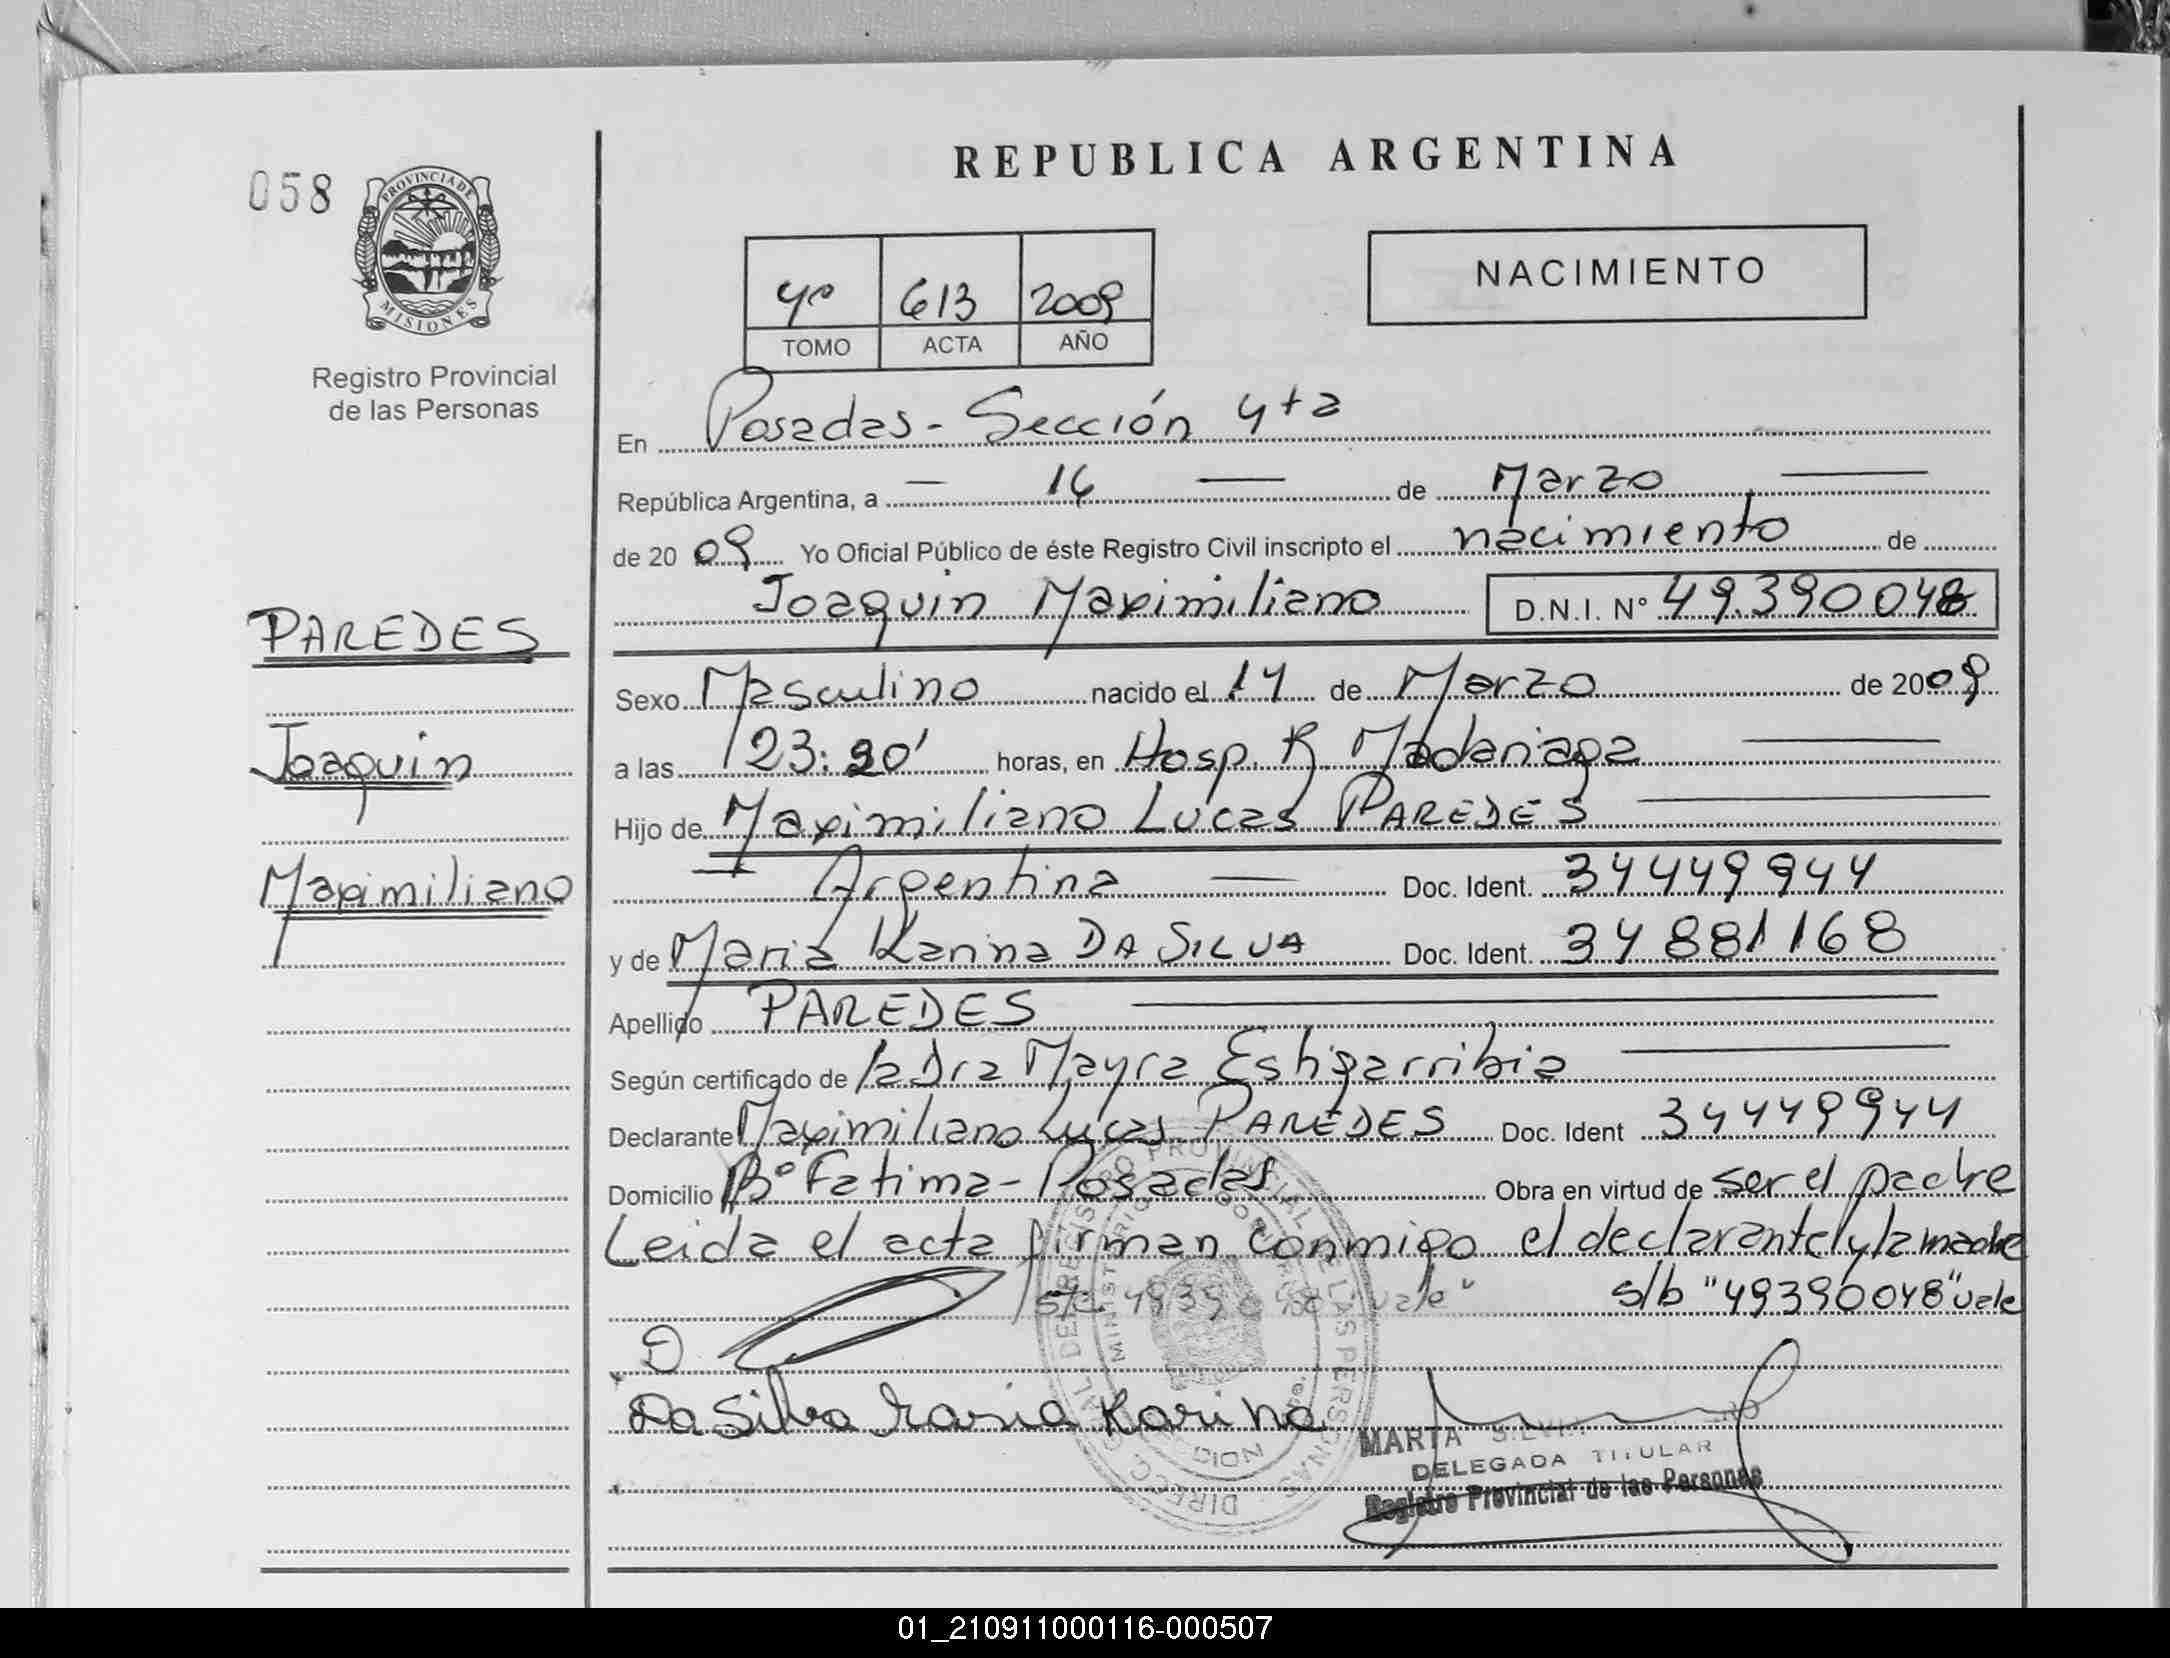 REPUBLICA ARGENTINA
058
PROVINCIA DE
MISIONES
Registro Provincial
de las Personas
NACIMIENTO
4º 613 2009
TOMO ACTA AÑO
En Posadas - Sección 4ta
República Argentina, a — 16 — de Marzo —
de 2009 Yo Oficial Público de éste Registro Civil inscripto el nacimiento de
Joaquin Maximiliano D.N.I. Nº 49.390048
PAREDES
Joaquin
Maximiliano
Sexo Masculino nacido el 14 de Marzo de 2009
a las 23:20' horas, en Hosp. R Madariaga —
Hijo de Maximiliano Lucas PAREDES —
— Argentina — Doc. Ident. 34449944
y de Maria Karina DA SILVA Doc. Ident. 34881168
Apellido PAREDES —
Según certificado de la Dra Mayra Estigarribia —
Declarante Maximiliano Lucas PAREDES Doc. Ident 34449944
Domicilio Bº Fatima - Posadas Obra en virtud de ser el padre
Leida el acta firman conmigo el declarante y la madre
s/b "49390048" vale
Da Silva Maria Karina
MARTA
DELEGADA TITULAR
Registro Provincial de las Personas
01_210911000116-000507